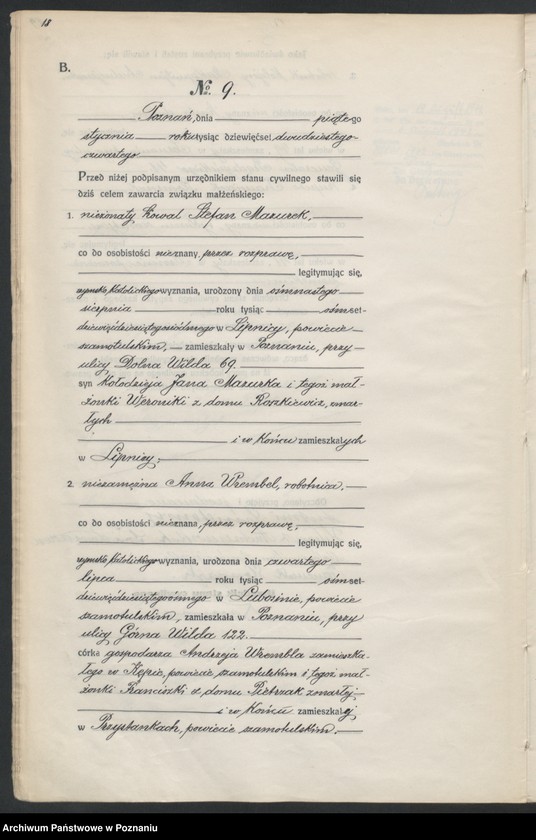 18
B.
№. 9.
Poznań, dnia piątego
stycznia roku tysiąc dziewięćset dwudziestego-
czwartego
Przed niżej podpisanym urzędnikiem stanu cywilnego stawili się
dziś celem zawarcia związku małżeńskiego:
1. nieżonaty kowal Stefan Mazurek,
co do osobistości nieznany, przez rozprawę,
legitymując się,
rzymsko katolickiego wyznania, urodzony dnia ośmnastego
sierpnia roku tysiąc ośmset-
dziewięćdziesiątegosiódmego w Lipnicy, powiecie
szamotulskim, zamieszkały w Poznaniu, przy
ulicy Dolna Wilda 69.
syn kołodzieja Jana Mazurka i tegoż mał-
żonki Weroniki z domu Roszkiewicz, zmar-
łych
i w końcu zamieszkałych
w Lipnicy,
2. niezamężna Anna Wrembel, robotnica,
co do osobistości nieznana, przez rozprawę,
legitymując się,
rzymsko katolickiego wyznania, urodzona dnia czwartego
lipca roku tysiąc ośmset-
dziewięćdziesiątegoósmego w Lubosinie, powiecie
szamotulskim, zamieszkała w Poznaniu, przy
ulicy Górna Wilda 122.
córka gospodarza Andrzeja Wrembla zamieszka-
łego w Kępie, powiecie szamotulskim i tegoż mał-
żonki Franciszki z domu Pietrzak zmarłej,
i w końcu zamieszkałej
w Przystankach, powiecie szamotulskim.
Archiwum Państwowe w Poznaniu